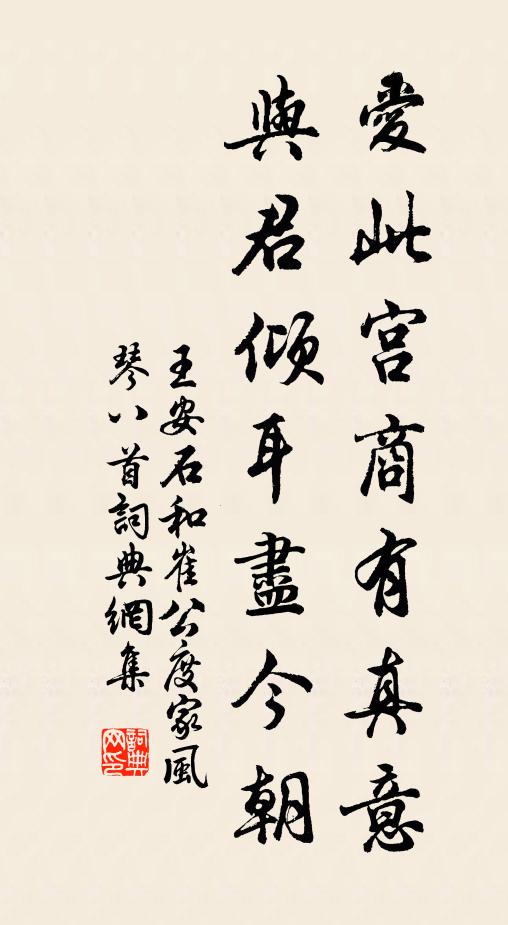 愛此宮商有真意
與君傾耳盡今朝
王安石和崔公度家風
琴八首詞典網集
詞典
网印